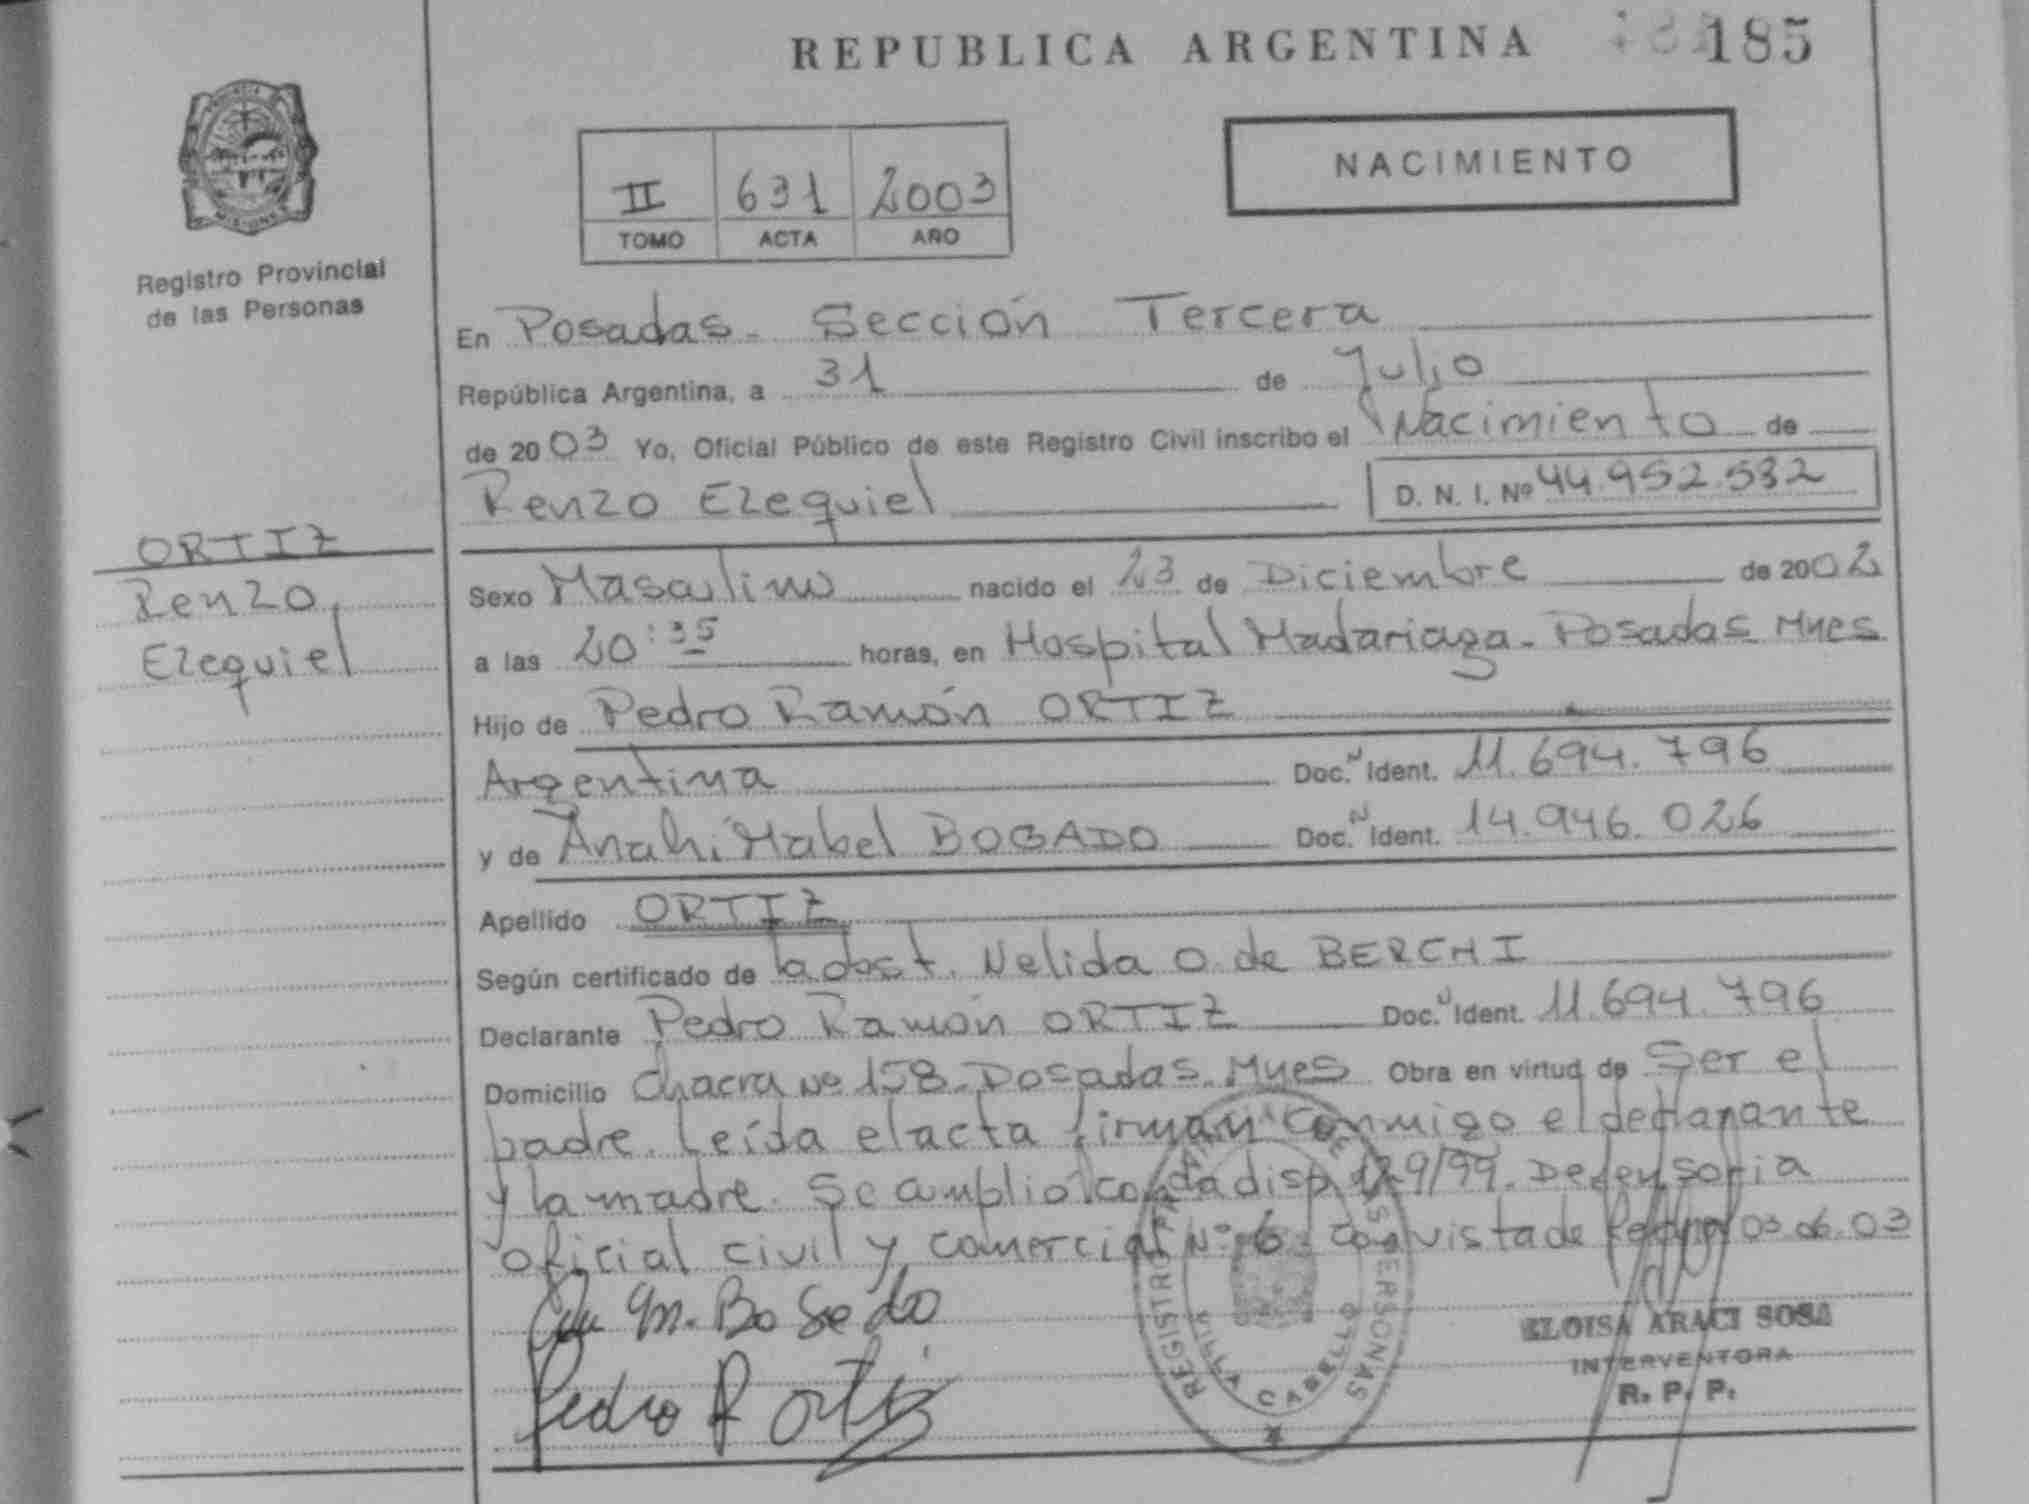 REPUBLICA ARGENTINA 185
NACIMIENTO
II 631 2003
TOMO ACTA AÑO
PROVINCIA
MISIONES
Registro Provincial
de las Personas
En Posadas - Sección Tercera
República Argentina, a 31 de Julio
de 2003 Yo, Oficial Público de este Registro Civil inscribo el Nacimiento de
Renzo Ezequiel D. N. I. Nº 44.952.532
ORTIZ
Renzo,
Ezequiel
Sexo Masculino nacido el 23 de Diciembre de 2002
a las 20:35 horas, en Hospital Madariaga - Posadas Mnes
Hijo de Pedro Ramón ORTIZ
Argentina Doc. N Ident. 11.694.796
y de Anahi Mabel BOGADO Doc. N Ident. 14.946.026
Apellido ORTIZ
Según certificado de la obst. Nelida O. de BERCHI
Declarante Pedro Ramón ORTIZ Doc. N Ident. 11.694.796
Domicilio Chacra Nº 158 - Posadas - Mnes Obra en virtud de Ser el
padre. Leída el acta firman conmigo el declarante
y la madre. Se amplió con la disp 129/99. Defensoria
oficial civil y comercial Nº 6 con vista de fecha 03.06.03
M. Bogado
Pedro R Ortiz
REGISTRO PROVINCIAL DE LAS PERSONAS
VILLA CABELLO
ELOISA ARACI SOSA
INTERVENTORA
R. P. P.